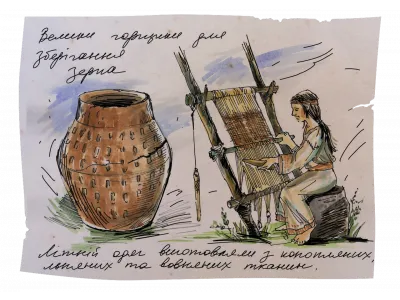 Великі горщики для
зберігання
зерна
Літній одяг виготовляли з конопляних,
льняних та вовняних тканин.